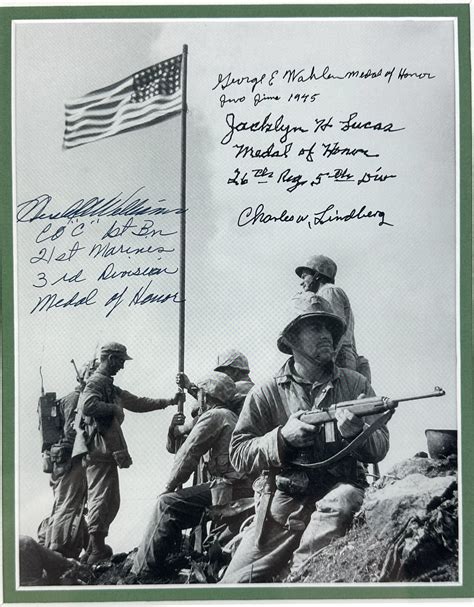 George E Wahlen Medal of Honor
Iwo Jima 1945
Jacklyn H Lucas
Medal of Honor
26th Reg 5th Div
Charles W. Lindberg
Hershel Williams
CO "C" 1st Bn
21st Marines
3rd Division
Medal of Honor